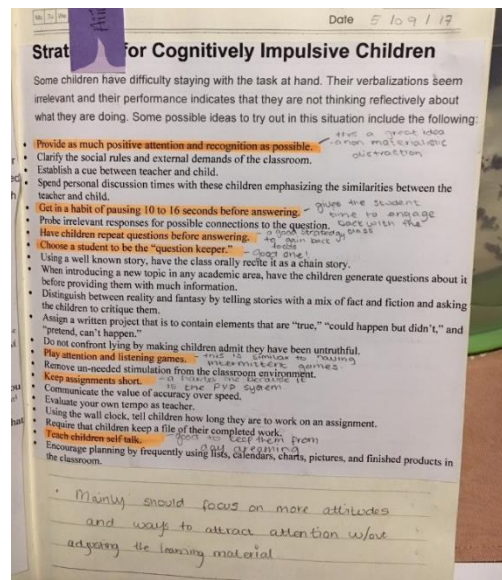 Date 5/09/17
Strat for Cognitively Impulsive Children
Some children have difficulty staying with the task at hand. Their verbalizations seem
irrelevant and their performance indicates that they are not thinking reflectively about
what they are doing. Some possible ideas to try out in this situation include the following:
this a great idea
Provide as much positive attention and recognition as possible. - a non materialistic
distraction
Clarify the social rules and external demands of the classroom.
Establish a cue between teacher and child.
Spend personal discussion times with these children emphasizing the similarities between the
teacher and child.
Get in a habit of pausing 10 to 16 seconds before answering. - gives the student
time to engage
Probe irrelevant responses for possible connections to the question. back with the
class
Have children repeat questions before answering. - a good strategy
to gain back
focus
Choose a student to be the "question keeper." - good one!
Using a well known story, have the class orally recite it as a chain story.
When introducing a new topic in any academic area, have the children generate questions about it
before providing them with much information.
Distinguish between reality and fantasy by telling stories with a mix of fact and fiction and asking
the children to critique them.
Assign a written project that is to contain elements that are "true," "could happen but didn't," and
"pretend, can't happen."
Do not confront lying by making children admit they have been untruthful.
Play attention and listening games. - this is similar to having
intermittent games
Remove un-needed stimulation from the classroom environment.
Keep assignments short. - a because it
is the PYP system
Communicate the value of accuracy over speed.
Evaluate your own tempo as teacher.
Using the wall clock, tell children how long they are to work on an assignment.
Require that children keep a file of their completed work.
Teach children self talk. - good to keep them from
day dreaming
Encourage planning by frequently using lists, calendars, charts, pictures, and finished products in
the classroom.
Mainly should focus on more attitudes
and ways to attract attention w/out
adjusting the learning material